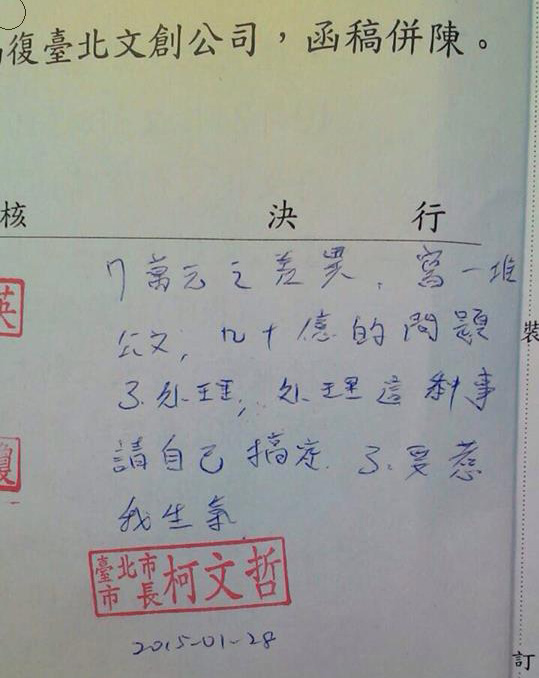 復臺北文創公司，函稿併陳。
核 決 行
英
7萬元之差異，寫一堆
公文，几十億的問題
不处理，处理這种事
請自己搞定，不要惹
我生氣。
臺北市市長柯文哲
2015-01-28
裝
訂